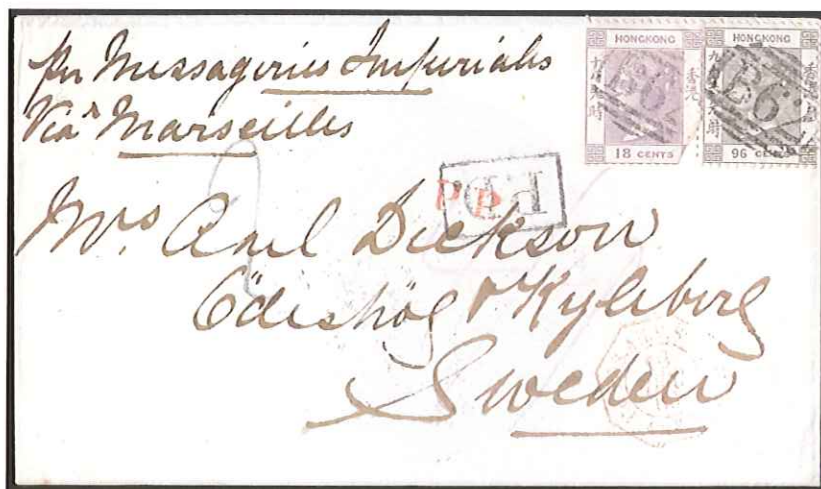 per Messageries Imperiales
Via Marseilles
HONGKONG
香港
18 CENTS
B62
HONGKONG
香港
九十六先時
96 CENTS
B62
PD
P.P.
Mrs Axel Dickson
Ödeshög & Kyleberg
Sweden